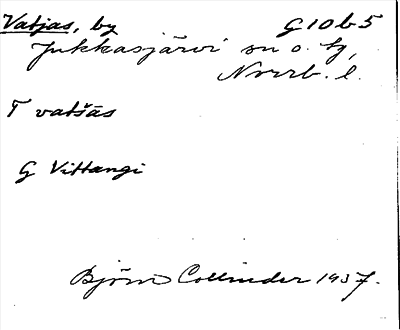 Vatjas, by G10b5
Jukkasjärvi sn o. tg,
Norrb. l.
T vatšàs
G Vittangi
Björn Collinder 1937.